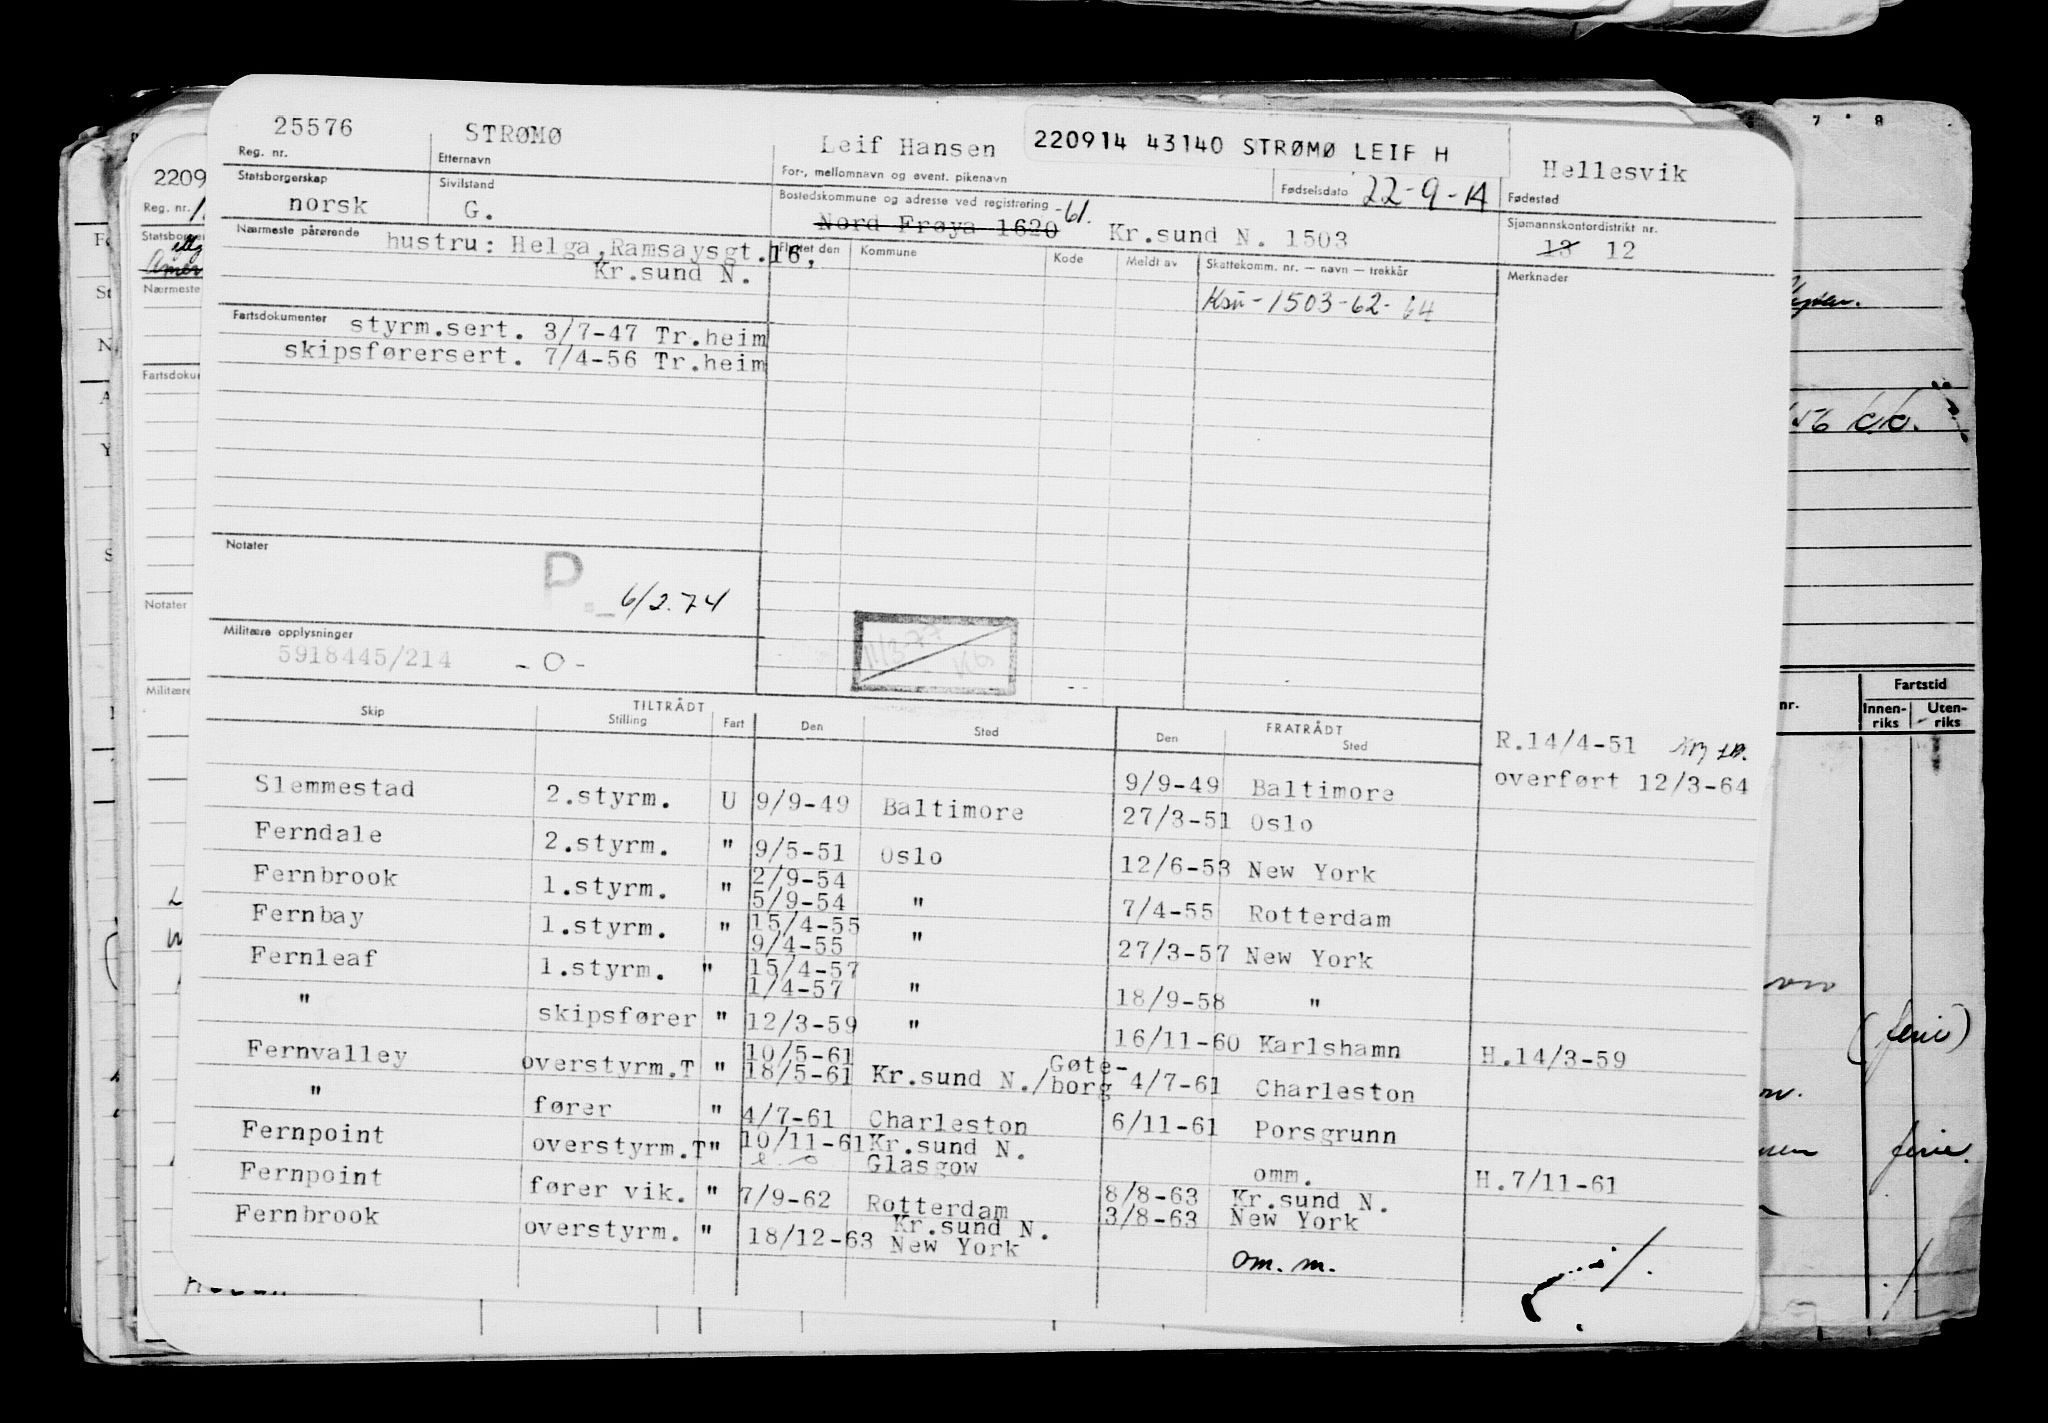 25576 STRØMØ Leif Hansen 220914 43140 STRØMØ LEIF H Hellesvik
Reg. nr. Etternavn For-, mellomnavn og event. pikenavn Fødselsdato 22-9-14 Fødested
Statsborgerskap Sivilstand Bostedskommune og adresse ved registrering Sjømannskontordistrikt nr.
norsk G. Nord Frøya 1620 -61. Kr.sund N. 1503 13 12
Nærmeste pårørende hustru: Helga,Ramsaysgt.16, Flyttet den Kommune Kode Meldt av Skattekomm. nr. — navn — trekkår Merknader
Kr.sund N.
Ksu-1503-62-64
Fartsdokumenter styrm.sert. 3/7-47 Tr.heim
skipsførersert. 7/4-56 Tr.heim
Notater
P. 6/2.74
Militære opplysninger
5918445/214 -0-
TILTRÅDT FRATRÅDT
Skip Stilling Fart Den Sted Den Sted
R.14/4-51
overført 12/3-64
Slemmestad 2.styrm. U 9/9-49 Baltimore 9/9-49 Baltimore
27/3-51 Oslo
Ferndale 2.styrm. " 9/5-51 Oslo 12/6-53 New York
Fernbrook 1.styrm. " 2/9-54
5/9-54 " 7/4-55 Rotterdam
Fernbay 1.styrm. " 15/4-55
9/4-55 " 27/3-57 New York
Fernleaf 1.styrm. " 15/4-57
1/4-57 " 18/9-58 "
" skipsfører " 12/3-59 " 16/11-60 Karlshamn H.14/3-59
Fernvalley overstyrm.T " 10/5-61
18/5-61 Kr.sund N./Gøte-
borg 4/7-61 Charleston
" fører " 4/7-61 Charleston 6/11-61 Porsgrunn
Fernpoint overstyrm.T " 10/11-61 Kr.sund N.
Glasgow omm. H.7/11-61
Fernpoint fører vik. " 7/9-62 Rotterdam 8/8-63 Kr.sund N.
3/8-63 New York
Fernbrook overstyrm. " 18/12-63 Kr.sund N.
New York om. m.
2209
Reg. nr.
Statsborger
Nærmeste
Fartsdoku
Notater
Militære
7 8
nr. Fartstid
Innen-
riks Uten-
riks
(ferie)
ferie.